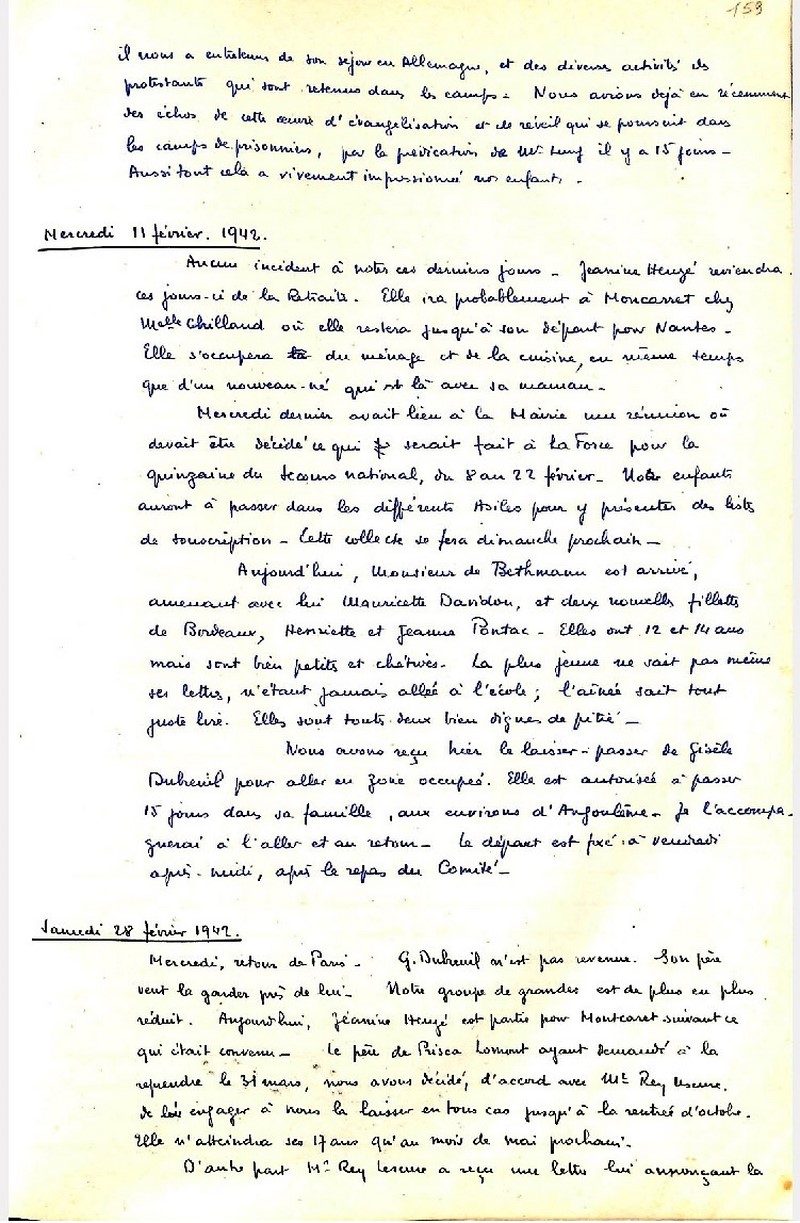 159
il nous a entretenus de son séjour en Allemagne, et des diverses activités des
protestants qui sont retenus dans les camps. Nous avions déjà eu récemment
des échos de cette œuvre d'évangélisation et de réveil qui se poursuit dans
les camps de prisonniers, par la prédication de Mr il y a 15 jours _
Aussi tout cela a vivement impressionné nos enfants _
Mercredi 11 février. 1942.
Aucun incident à noter ces derniers jours _ Jeanine Heuzé reviendra
ces jours-ci de la Retraite. Elle ira probablement à Moncarret chez
Melle Chilland où elle restera jusqu'à son départ pour Nantes _
Elle s'occupera du ménage et de la cuisine, en même temps
que d'un nouveau-né qui est là avec sa maman _
Mercredi dernier avait lieu à la Mairie une réunion où
devait être décidé ce qui serait fait à La Force pour la
quinzaine du Secours national, du 8 au 22 février _ Nos enfants
auront à passer dans les différents Asiles pour y présenter des listes
de souscription _ Cette collecte se fera dimanche prochain _
Aujourd'hui, Monsieur de Bethmann est arrivé,
amenant avec lui Mauricette Davidou, et deux nouvelles fillettes
de Bordeaux, Henriette et Jeanne Pontac _ Elles ont 12 et 14 ans
mais sont bien petites et chétives. La plus jeune ne sait pas même
ses lettres, n'étant jamais allée à l'école ; l'aînée sait tout
juste lire. Elles sont toutes deux bien dignes de pitié _
Nous avons reçu hier le laisser-passer de Gisèle
Dubreuil pour aller en zone occupée. Elle est autorisée à passer
15 jours dans sa famille, aux environs d'Angoulême _ Je l'accompa-
gnerai à l'aller et au retour _ Le départ est fixé à vendredi
après-midi, après le repas du Comité _
Samedi 28 février 1942.
Mercredi, retour de Paris _ G. Dubreuil n'est pas revenue. Son père
veut la garder près de lui _ Notre groupe de grandes est de plus en plus
réduit. Aujourd'hui, Jeanine Heuzé est partie pour Montcaret suivant ce
qui était convenu _ Le père de Prisca Lomont ayant demandé à la
reprendre le 31 mars, nous avons décidé, d'accord avec Mr Rey Lescure,
de engager à nous la laisser en tous cas jusqu'à la rentrée d'octobre.
Elle n'atteindra ses 17 ans qu'au mois de mai prochain.
D'autre part Mr Rey Lescure a reçu une lettre lui annonçant la